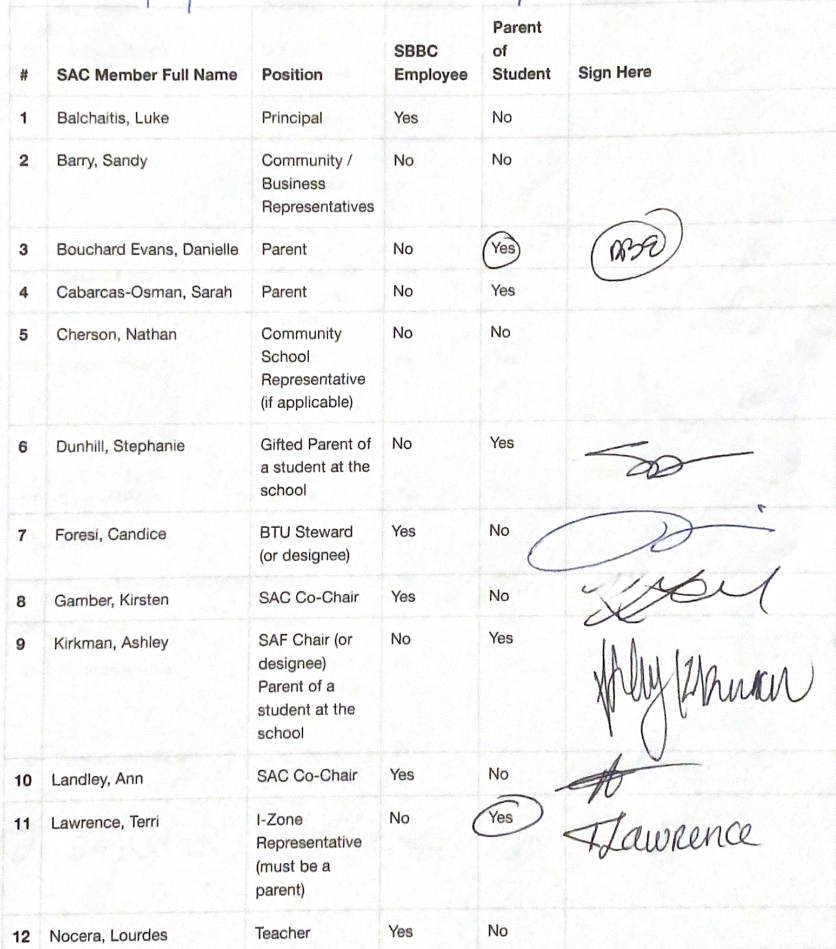 Parent
SBBC of
# SAC Member Full Name Position Employee Student Sign Here
1 Balchaitis, Luke Principal Yes No
2 Barry, Sandy Community / No No
Business
Representatives
3 Bouchard Evans, Danielle Parent No Yes DBE
4 Cabarcas-Osman, Sarah Parent No Yes
5 Cherson, Nathan Community No No
School
Representative
(if applicable)
6 Dunhill, Stephanie Gifted Parent of No Yes
a student at the
school
7 Foresi, Candice BTU Steward Yes No
(or designee)
8 Gamber, Kirsten SAC Co-Chair Yes No
9 Kirkman, Ashley SAF Chair (or No Yes
designee)
Parent of a
student at the
school
Ashley Kirkman
10 Landley, Ann SAC Co-Chair Yes No
11 Lawrence, Terri I-Zone No Yes
Representative TLawrence
(must be a
parent)
12 Nocera, Lourdes Teacher Yes No